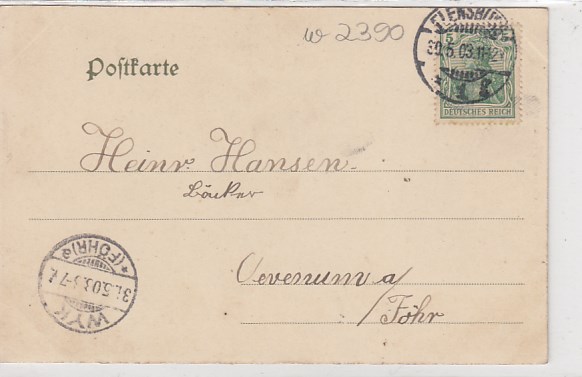 w 2390
FLENSBURG
30.5.03.11-12V
* 1 f
DEUTSCHES REICH
Postkarte
Heinr. Hansen.
Bäcker
Oevenum a/
Föhr
WYK
31.5.03.6-7V.
*(FÖHR)a